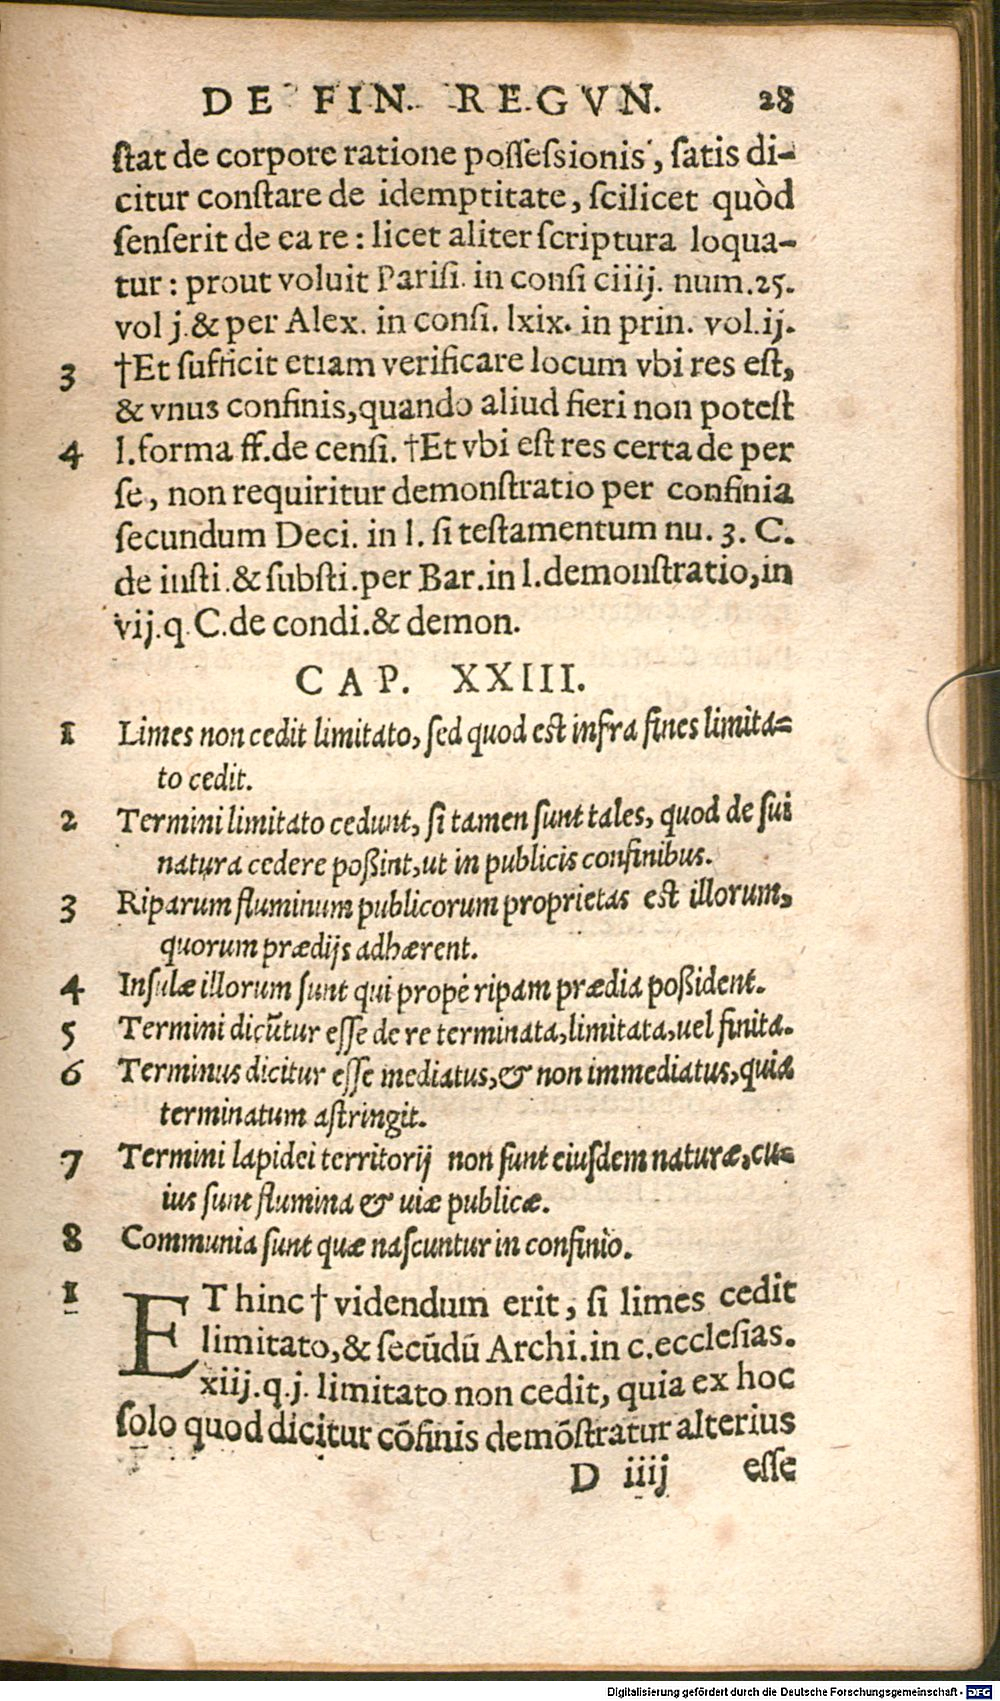 DE FIN. REGVN. 28
ſtat de corpore ratione poſſeſsionis, ſatis di-
citur conſtare de idemptitate, ſcilicet quòd
ſenſerit de ea re : licet aliter ſcriptura loqua-
tur : prout voluit Pariſi. in conſi ciiij. num.25.
vol j.& per Alex. in conſi. lxix. in prin. vol.ij.
3 †Et ſufficit etiam verificare locum vbi res eſt,
& vnus confinis,quando aliud fieri non poteſt
4 l.forma ff.de cenſi. †Et vbi eſt res certa de per
ſe, non requiritur demonſtratio per confinia
ſecundum Deci. in l. ſi teſtamentum nu. 3. C.
de iuſti.& ſubſti.per Bar.in l.demonſtratio,in
vij.q C.de condi.& demon.
CAP. XXIII.
1 Limes non cedit limitato, ſed quod eſt infra fines limita-
to cedit.
2 Termini limitato cedunt, ſi tamen ſunt tales, quod de ſui
natura cedere poßint,ut in publicis confinibus.
3 Riparum fluminum publicorum proprietas eſt illorum,
quorum prædijs adhærent.
4 Inſulæ illorum ſunt qui propè ripam prædia poßident.
5 Termini dicūtur eſſe de re terminata,limitata,uel finita.
6 Terminus dicitur eſſe mediatus,& non immediatus,quia
terminatum aſtringit.
7 Termini lapidei territorij non ſunt eiuſdem naturæ,cu-
ius ſunt flumina & uiæ publicæ.
8 Communia ſunt quæ naſcuntur in confinio.
1 ET hinc † videndum erit, ſi limes cedit
limitato,& ſecūdū Archi.in c.eccleſias.
xiij.q.j. limitato non cedit, quia ex hoc
ſolo quod dicitur cōfinis demōſtratur alterius
D iiij eſſe
Digitalisierung gefördert durch die Deutsche Forschungsgemeinschaft - DFG